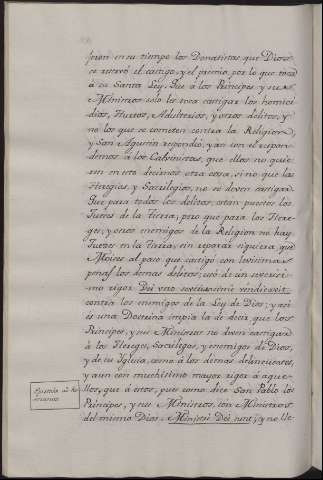 jeron en su tiempo los Donatistas que Dios
se reservó el castigo, y el premio, por lo que toca
á su Santa Ley. Que á los Principes y sus
Ministros solo les toca castigar los homici
dios, Hurtos, Adulterios, y otros delitos, y
no los que se cometen contra la Religion,
y San Agustin respondió, y asi con el respon
demos á los Calvinistas, que ellos no quie
ren en esto decirnos otra cosa, sino que las
Heregias, y Sacrilegios, no se deven castigar
Que para todos los delitos, están puestos los
Jueces de la tierra; pero que para los Here
ges, y otros enemigos de la Religion no hay
Jueces en la tierra, sin reparar siquiera, que
Moises al paso que castigó con levisimas
penas los demas delitos, usó de un severisi
mo rigor
contra los enemigos de la Ley de Dios; y asi
és una Doctrina impia la de decir que los
Principes, y sus Ministros no deven castigar
á los Hereges, Sacrilegos, y enemigos de Dios,
y de su Yglesia, como á los demas delinquentes,
y aun con muchisimo mayor rigor á aque
llos, que á estos; pues como dice San Pablo los
Principes, y sus Ministros, son Ministros
del mismo Dios. Ministri Dei sunt; y no lle
Epistola ad Ro
manos